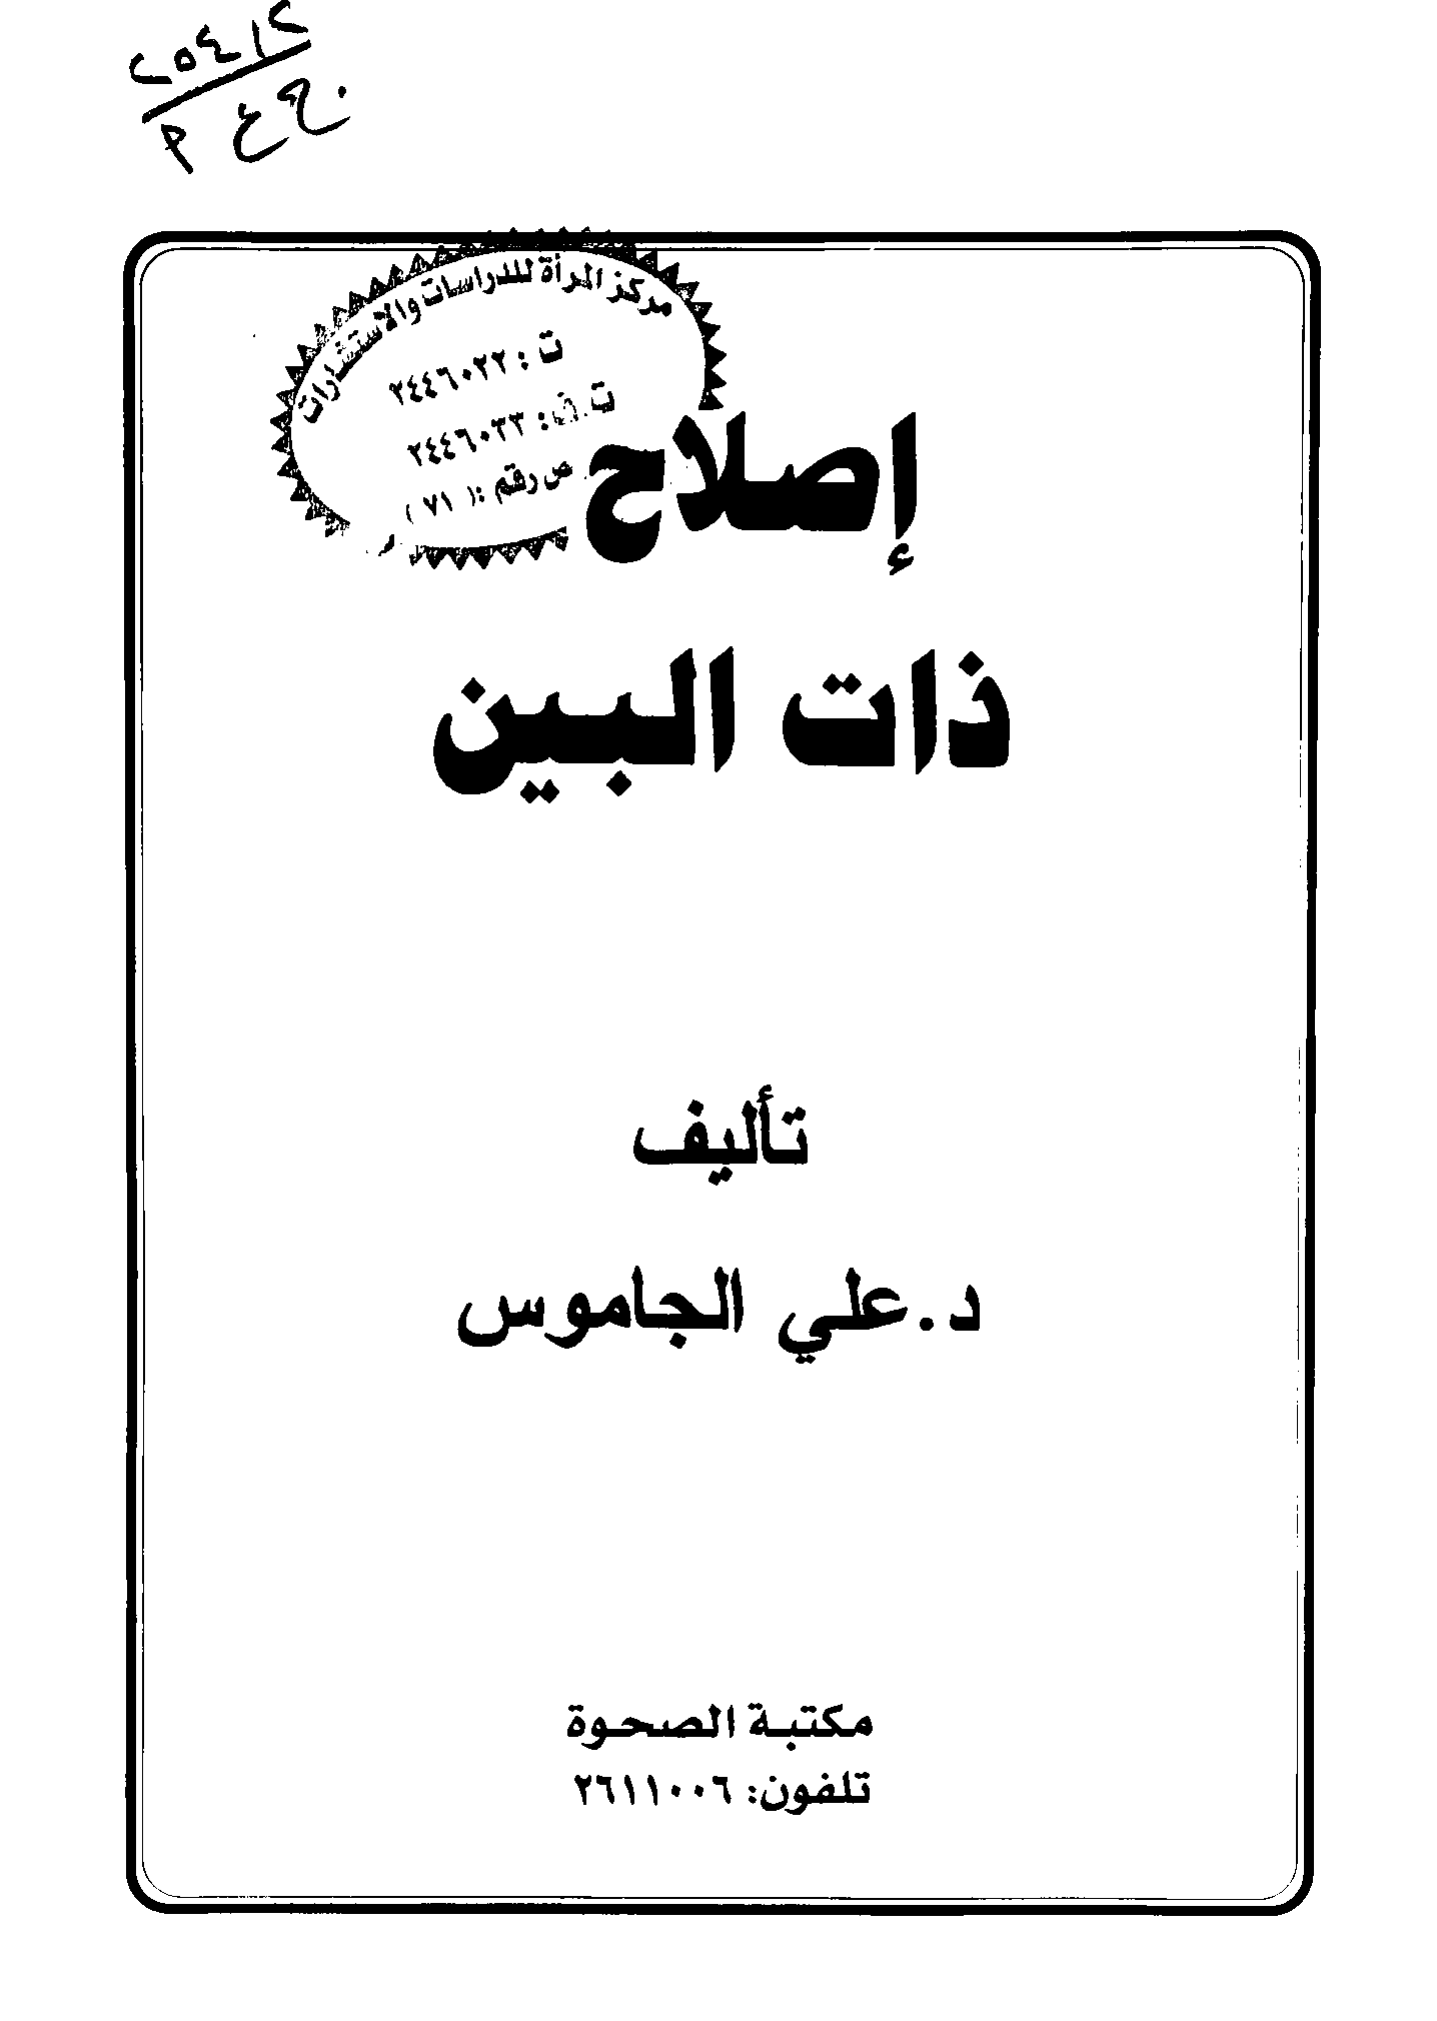 ٢٥٤١٢
مركز المرأة للدراسات والاستشارات
ت : ٢٤٤٦٠٢٢
ت.ف : ٢٤٤٦٠٣٣
ص رقم : ( ٧١ )
إصلاح
ذات البين
تأليف
د. علي الجاموس
مكتبة الصحوة
تلفون: ٢٦١١٠٠٦